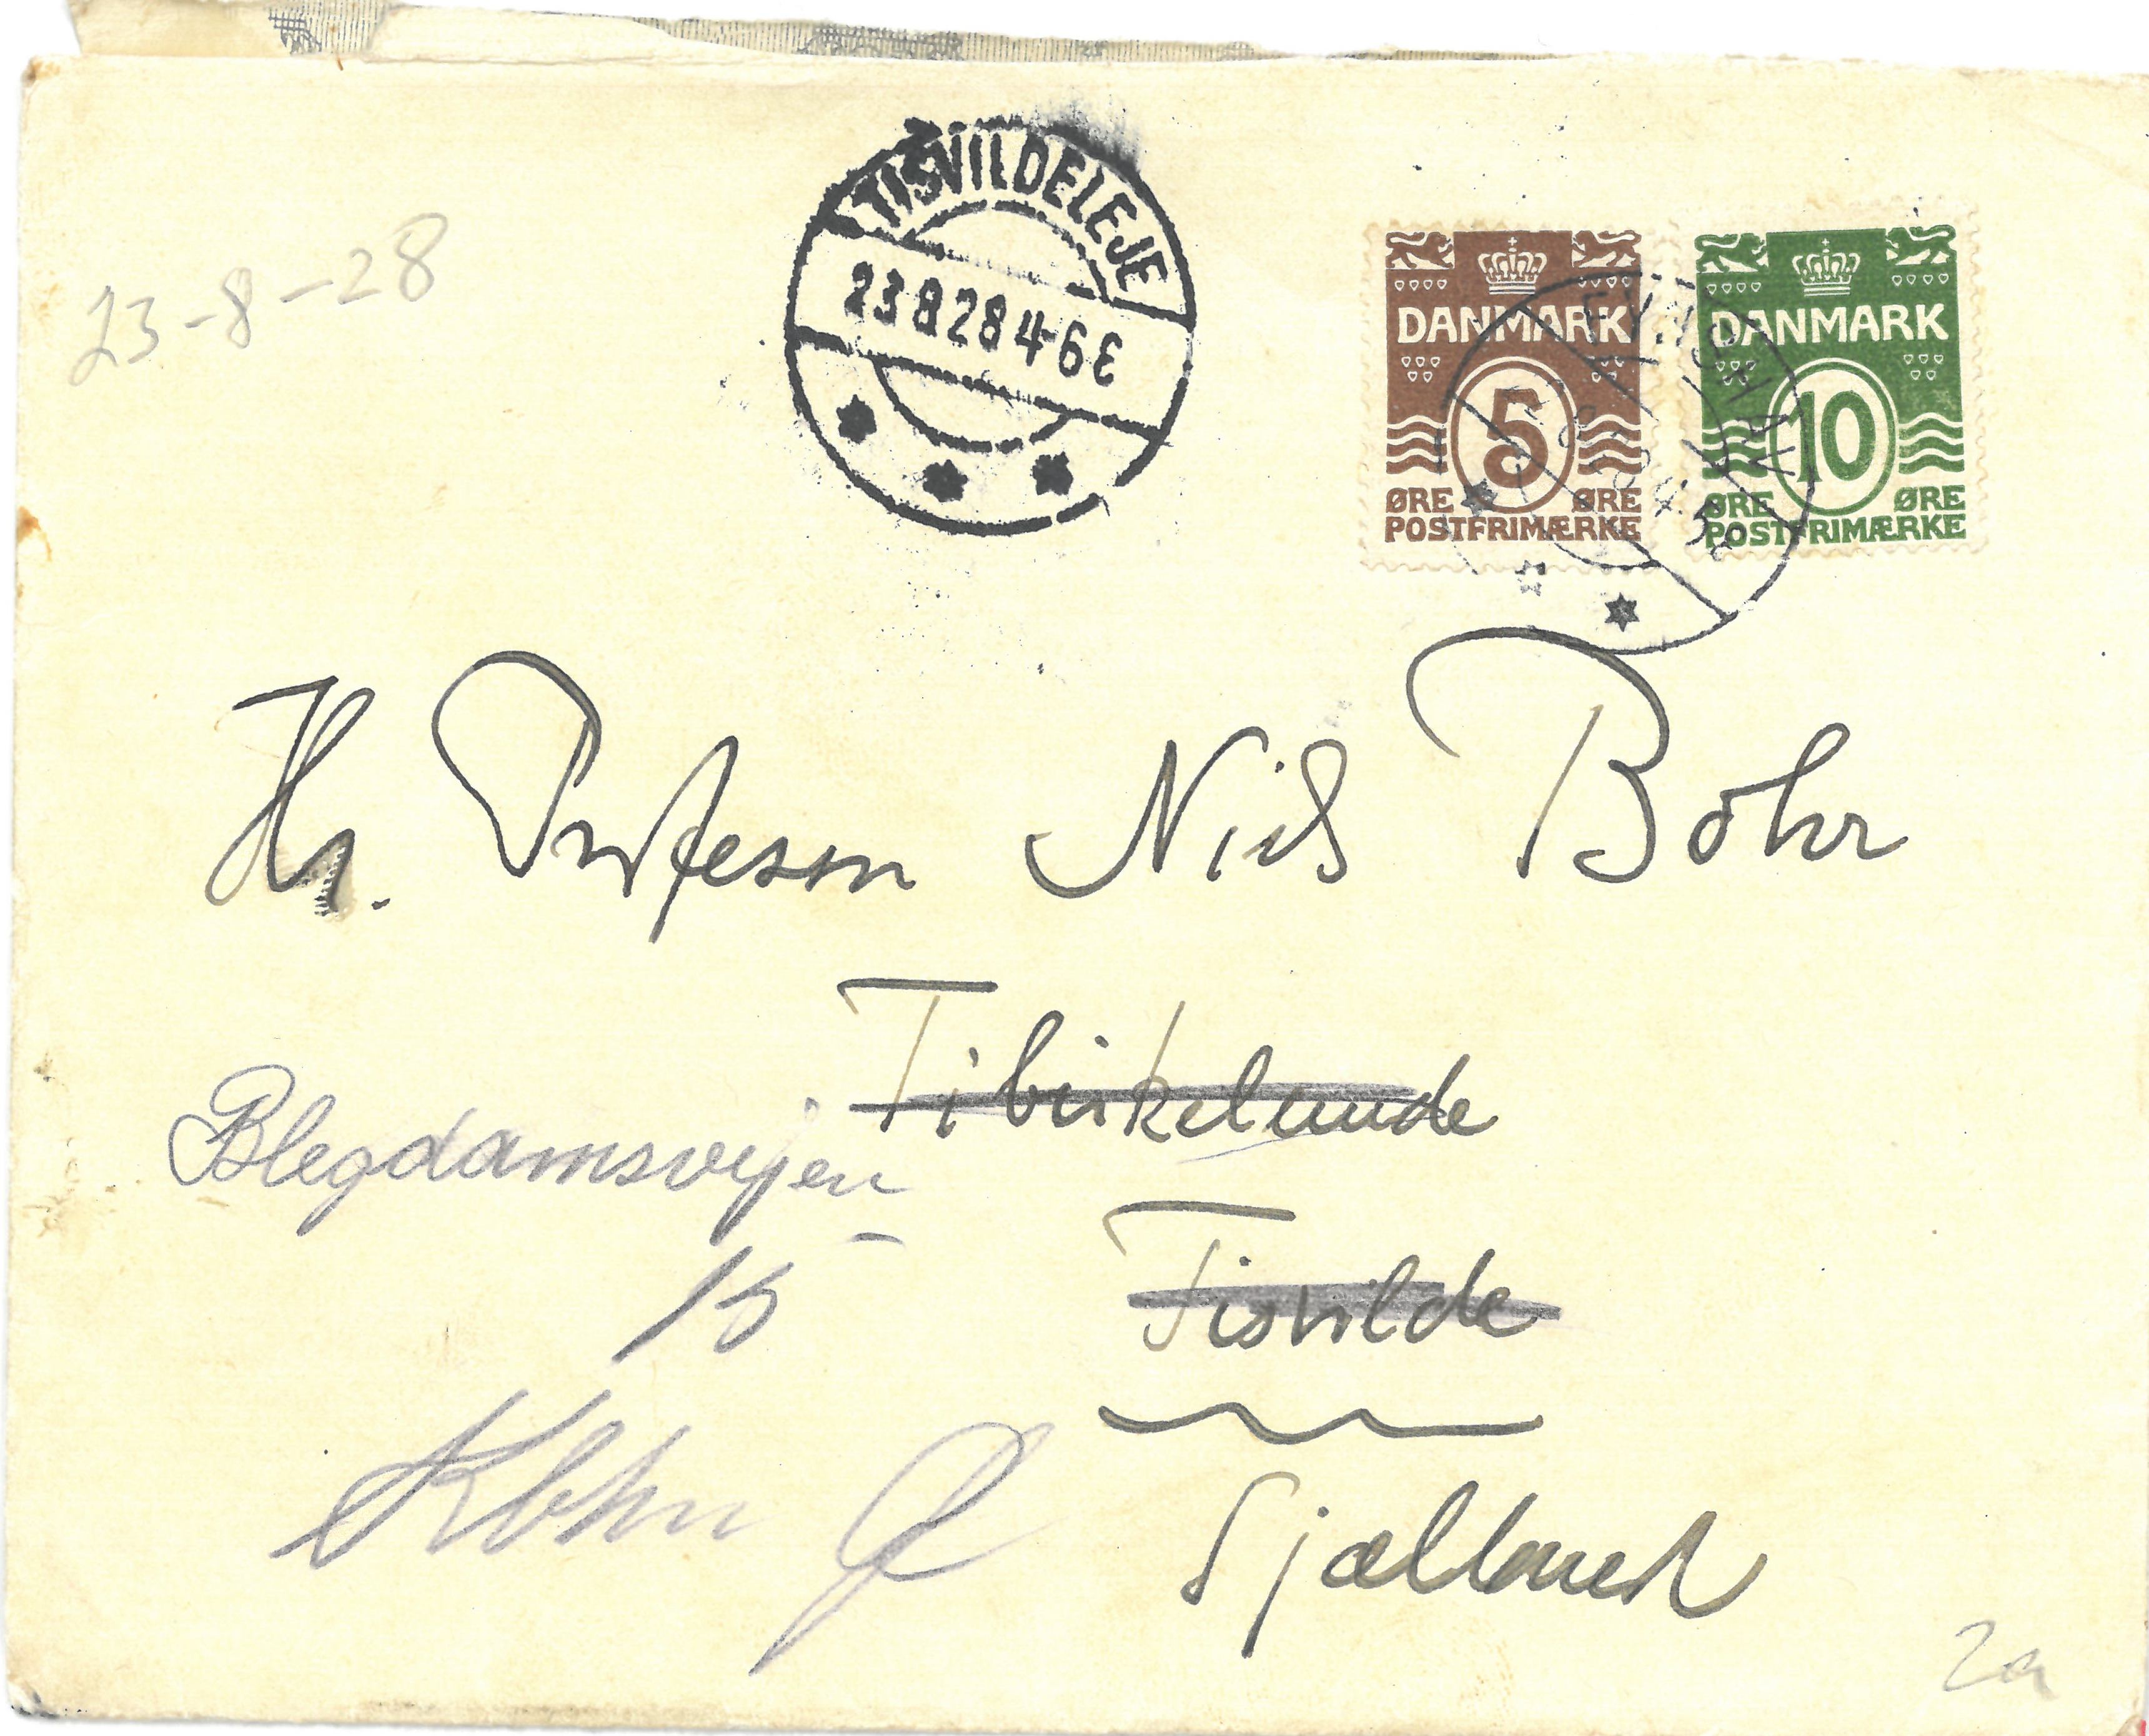 TISVILDELEJE
23 8 28 4-6 E
23-8-28
DANMARK
5
ØRE ØRE
POSTFRIMÆRKE
DANMARK
10
ØRE ØRE
POSTFRIMÆRKE
Hr. Professor Niels Bohr
Tibirkelunde
Blegdamsvejen
15
Tisvilde
Kbhn Ø
Sjælland
2a